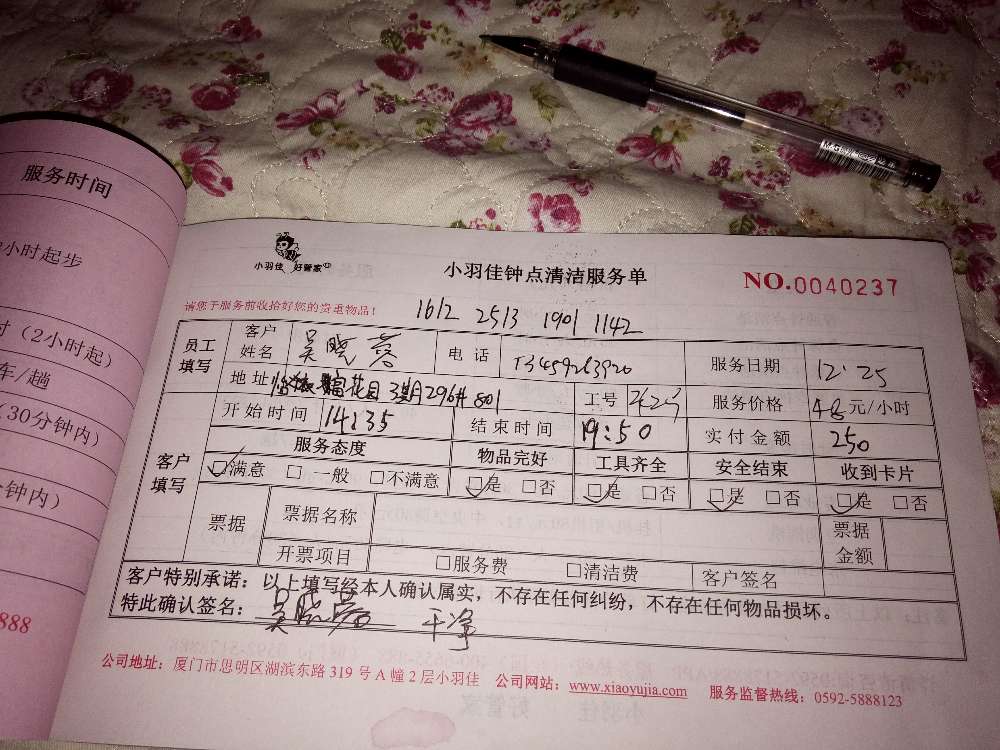 服务时间
小时起步
(2小时起)
车/趟
(30分钟内)
钟内)
888
小羽佳 好管家
小羽佳钟点清洁服务单
NO.0040237
请您于服务前收拾好您的贵重物品！
1612 2513 1901 1142
员工填写 客户姓名 吴晓蓉 电话 服务日期 12.25
地址 花园 296# 801 工号 服务价格 48元/小时
客户填写 开始时间 14:35 结束时间 19:50 实付金额 250
服务态度 物品完好 工具齐全 安全结束 收到卡片
满意 一般 不满意 是 否 是 否 是 否 是 否
票据 票据名称 票据金额
开票项目 服务费 清洁费 客户签名
客户特别承诺：以上填写经本人确认属实，不存在任何纠纷，不存在任何物品损坏。
特此确认签名：吴晓蓉 干净
公司地址：厦门市思明区湖滨东路 319 号 A 幢 2 层小羽佳 公司网站：www.xiaoyujia.com 服务监督热线：0592-5888123